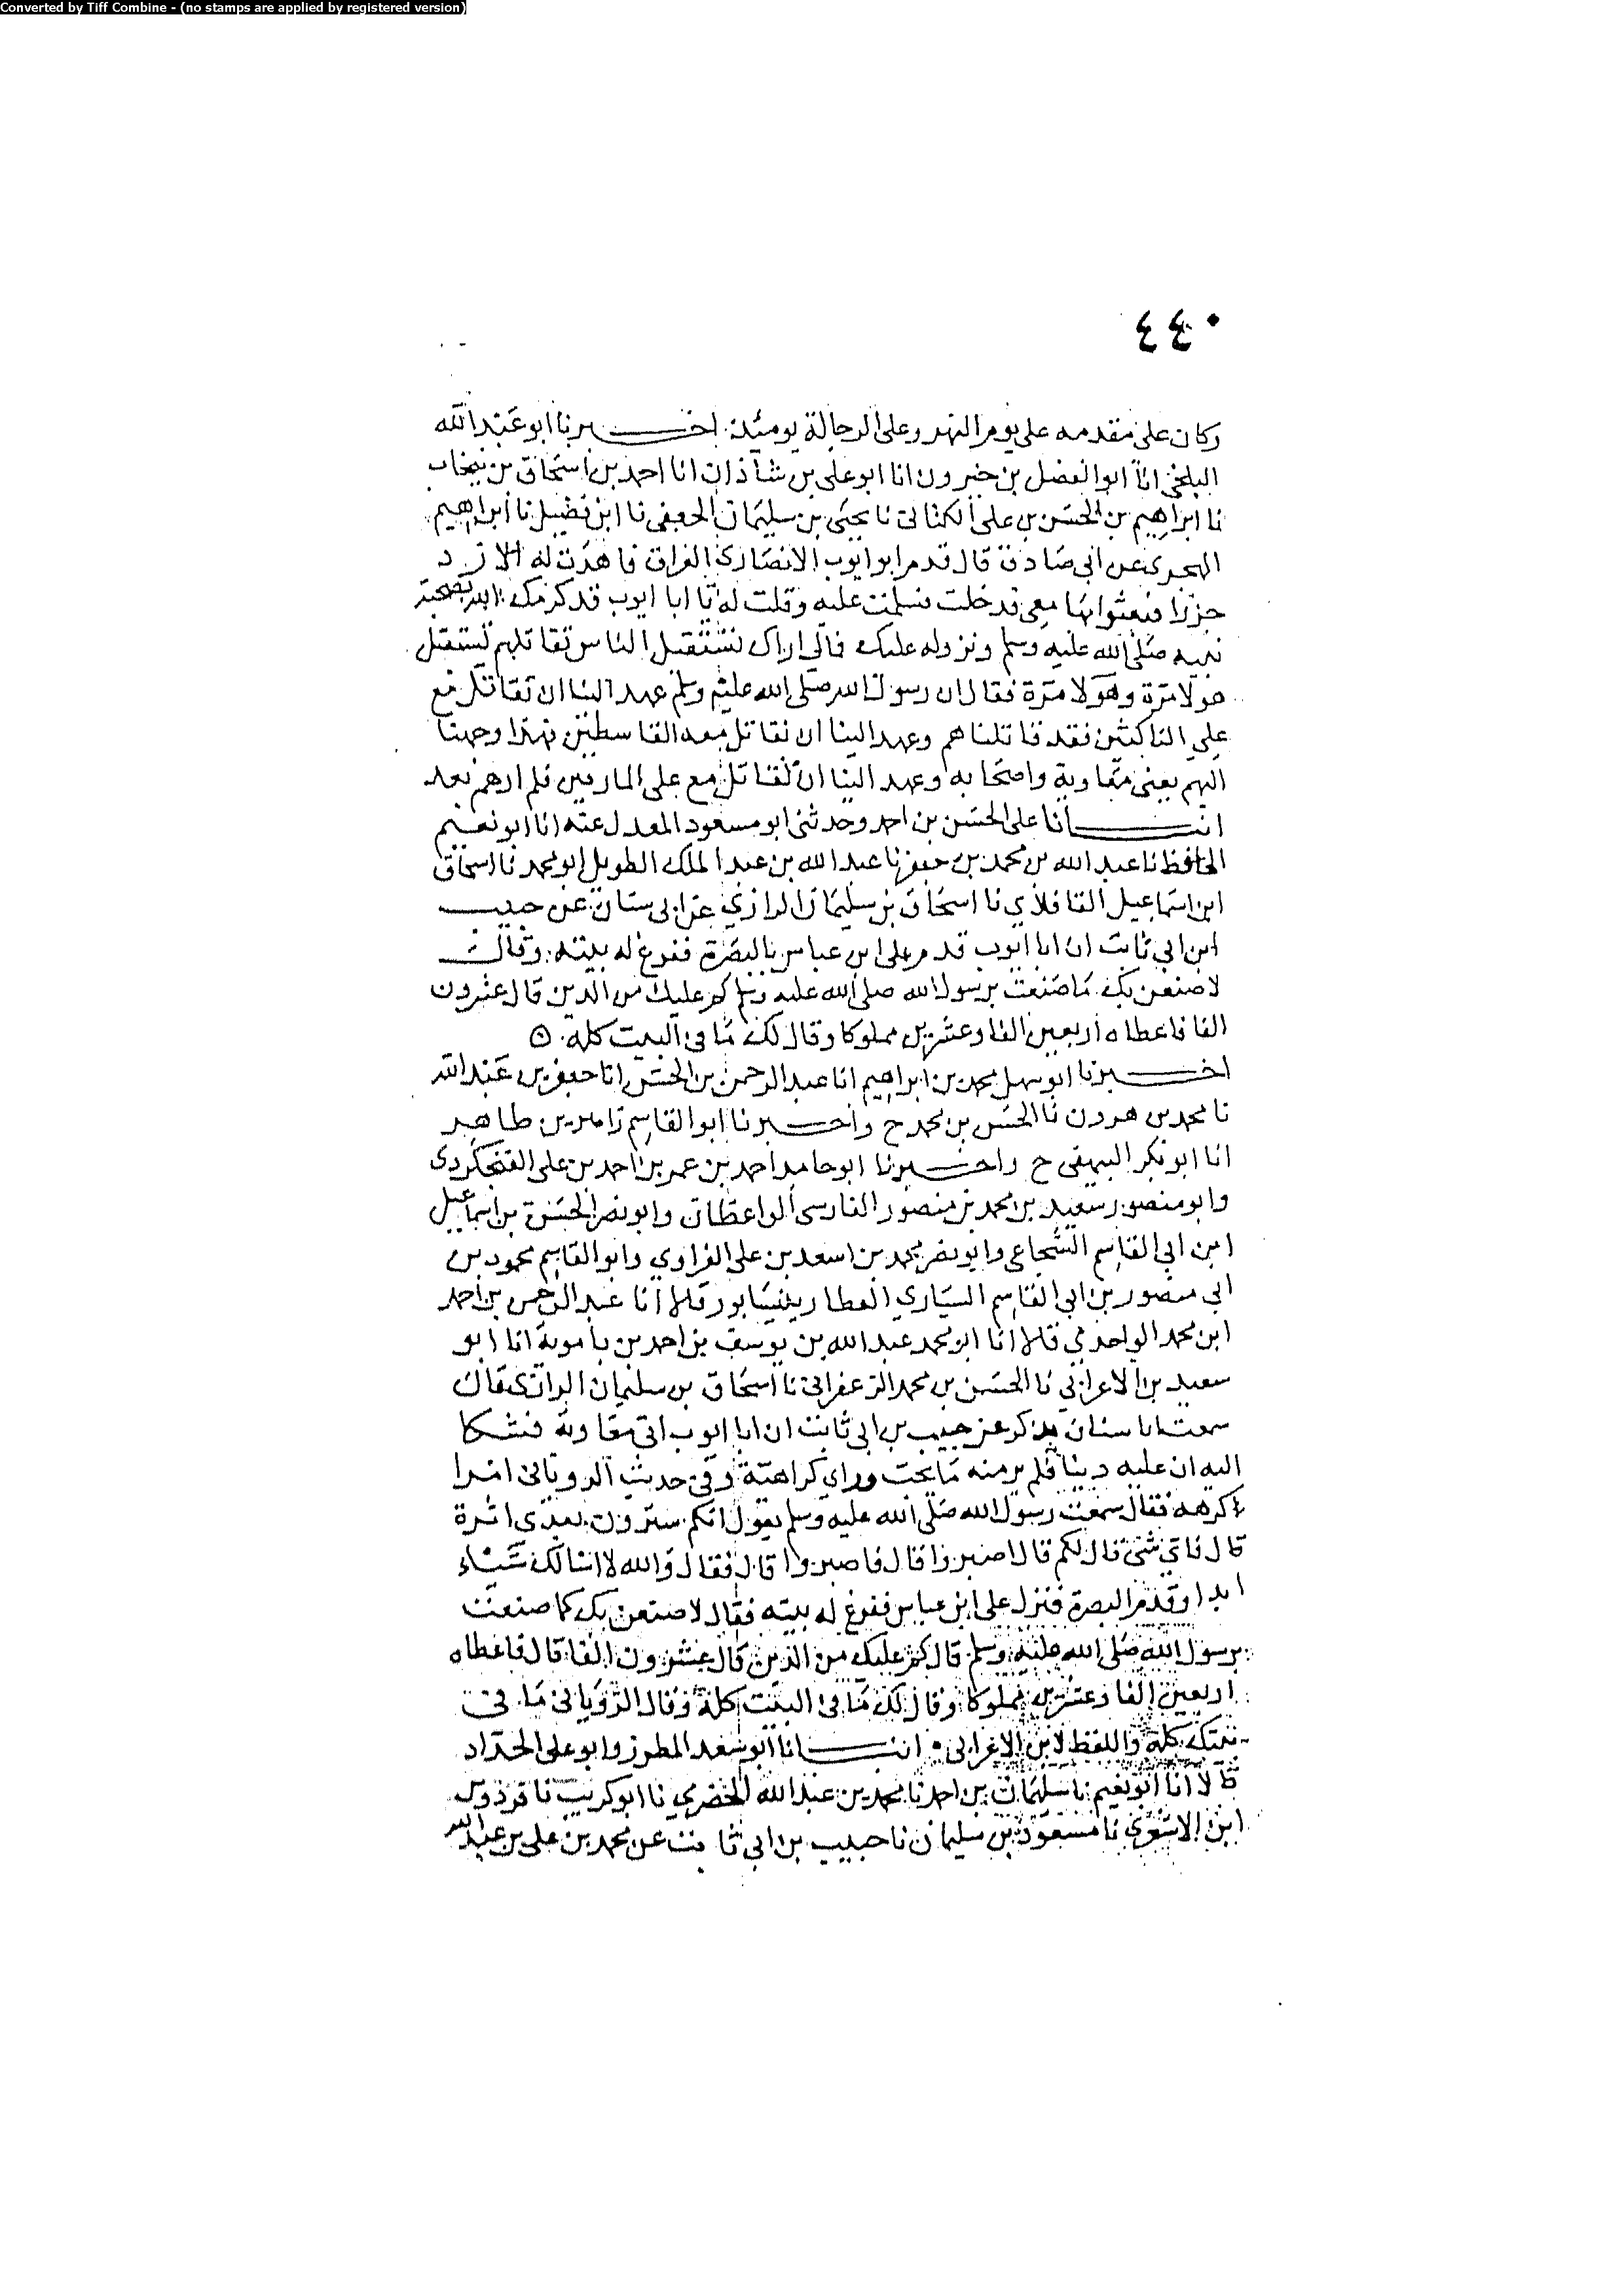 Converted by Tiff Combine - (no stamps are applied by registered version)
٤٤٠
وكان على مقدمه على يوم النهر وعلى الرجالة يومئذ. اخبرنا ابو عبد الله
البلخي انا ابو الفضل بن خيرون انا ابو علي بن شاذان انا احمد بن اسحاق بن نيخاب
نا ابراهيم بن الحسن بن علي الكنانى نا يحيى بن سليمان الجعفي نا ابن فضيل نا ابراهيم
الهجري عن ابي صادق قال قدم ابو ايوب الانصاري العراق فاهدت له الازد
جزرا فبعثوا بها معي فدخلت فسلمت عليه وقلت له يا ابا ايوب قد كرمك الله بصحبة
نبيه صلى الله عليه وسلم ونزوله عليك فالى اراك تستقبل الناس تقاتلهم تستقبل
هولا مرة وهولا مرة فقال ان رسول الله صلى الله عليه وسلم عهد الينا ان نقاتل مع
علي الناكثين فقد قاتلناهم وعهد الينا ان نقاتل معه القاسطين فهذا وجهنا
اليهم يعني معاوية واصحابه وعهد الينا ان نقاتل مع علي المارقين فلم ارهم بعد
انبانا على الحسن بن احمد وحدثني ابو مسعود المعدل عنه انا ابو نعيم
الحافظ نا عبد الله بن محمد بن جعفر نا عبد الله بن عبد الملك الطويل ابو محمد نا اسحاق
ابن اسماعيل القافلاي نا اسحاق بن سليمان الرازي عن ابي سنان عن حبيب
ابن ابي ثابت ان ابا ايوب قدم على ابن عباس بالبصرة ففرغ له بيته وقال
لاصنعن بك ما صنعت برسول الله صلى الله عليه وسلم كم عليك من الدين قال عشرون
الفا فاعطاه اربعين الفا وعشرين مملوكا وقال لك ما في البيت كله. ه
اخبرنا ابو سهل محمد بن ابراهيم انا عبد الرحمن بن الحسن انا جعفر بن عبد الله
نا محمد بن هرون نا الحسن بن محمد ح واخبرنا ابو القاسم زاهر بن طاهر
انا ابو بكر البيهقي ح واخبرنا ابو حامد احمد بن عمر بن احمد بن علي الفنجكردي
وابو منصور سعيد بن محمد بن منصور الفارسي الواعظان وابو نصر الحسن بن اسماعيل
ابن ابي القاسم الشجاعي وابو نصر محمد بن اسعد بن علي الفراوي وابو القاسم محمود بن
ابي منصور بن ابي القاسم السياري العطار بنيسابور قالا انا عبد الرحمن بن احمد
ابن محمد الواحدي قالا انا ابو محمد عبد الله بن يوسف بن احمد بن بامويه انا ابو
سعيد بن الاعرابي نا الحسن بن محمد الزعفراني نا اسحاق بن سليمان الرازي قال
سمعت ابا سنان يذكر عن حبيب بن ابي ثابت ان ابا ايوب اتى معاوية فشكا
اليه ان عليه دينا فلم ير منه ما يحب وراي كراهته وفي حديث الروياني امرا
كرهه فقال سمعت رسول الله صلى الله عليه وسلم يقول انكم سترون بعدي اثرة
قال فاي شيء قال لكم قال اصبروا قال فاصبروا قال فقال والله لا اسالك شيئا
ابدا وقدم البصرة فنزل على ابن عباس ففرغ له بيته فقال لاصنعن بك كما صنعت
برسول الله صلى الله عليه وسلم قال كم عليك من الدين قال عشرون الفا قال فاعطاه
اربعين الفا وعشرين مملوكا وقال لك ما في البيت كله وقال الروياني ما في
بيتك كله واللفظ لابن الاعرابي. انبانا ابو سعد المطرز وابو علي الحداد
قالا انا ابو نعيم نا سليمان بن احمد نا محمد بن عبد الله الحضرمي نا ابو كريب نا فردوس
ابن الاشعري نا مسعود بن سليمان نا حبيب بن ابي ثابت عن محمد بن علي بن عبد الله